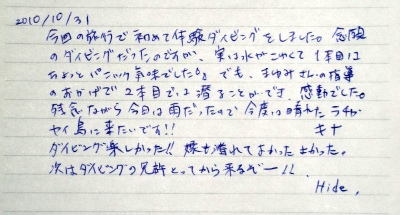 2010/10/31
今回の旅行で初めて体験ダイビングをしました。念願
のダイビングだったのですが、実は水がこわくて1本目は
ちょっとパニック気味でした。。でも、まゆみさんの指導
のおかげで2本目では潜ることができ、感動でした。
残念ながら今日は雨だったので今度は晴れたラチャ
ヤイ島に来たいです!! キナ
ダイビング楽しかった!! 嫁も潜れてよかったよかった。
次はダイビングの免許とってから来るぞー!!
Hide.